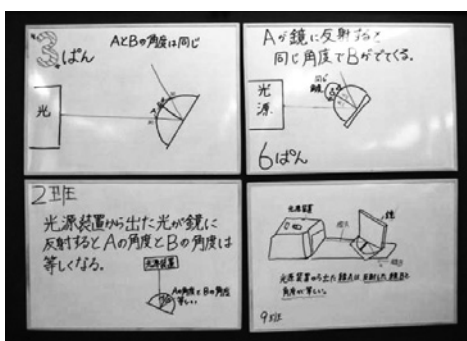 3ぱん
AとBの角度は同じ
光
Aが鏡に反射すると
同じ角度でBがでてくる。
同じ
角度
光
源
6ぱん
2班
光源装置から出た光が鏡に
反射するとAの角度とBの角度は
等しくなる。
光源装置
Aの角度とBの角度
等しい
光源装置
鏡
光源装置から出た線Aは、反射した線Bと
角度が等しい。
9班